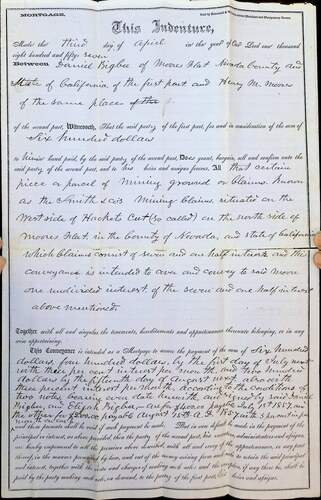 MORTGAGE,
This Indenture,
Made the third day of April in the year of Our Lord one thousand
eight hundred and fifty seven
Between Daniel Bigbee of Moores Flat Nevada County and
State of California of the first part and Henry M. Moore
of the same place of the
of the second part, Witnesseth, That the said party of the first part, for and in consideration of the sum of
Six hundred dollars
to him in hand paid, by the said party of the second part, Does grant, bargain, sell and confirm unto the
said party, of the second part, and to his heirs and assigns forever, All that certain
piece or parcel of mining ground or claims. Known
as the Smith & Co's Mining Claims situated on the
West side of Hackets Cut (so called) on the north side of
Moores Flat in the County of Nevada, and State of California
which claims consist of seven and on half interests and this
conveyance is intended to cover and convey to said Moore
one undivided interest of the seven and one half interest
above mentioned.
Together with all and singular the tenements, hereditaments and appurtenances thereunto belonging, or in any
wise appertaining.
This Conveyance is intended as a Mortgage to secure the payment of the sum of Six hundred
dollars, four hundred dollars, by the first day of July next
with three per cent interest per month, and two hundred
dollars by the fifteenth day of August next, also with
three per cent interest per month, according to the conditions of
two notes, bearing even date herewith, and signed by said Daniel
Bigbee, and Elijah Bigbee, one for payable July 1st 1857, and
the other for payable August 15th A.D. 1857, with 3 per cent per
month interest
and these presents shall be void if such payment be made. But in case default be made in the payment of the
principal or interest, as above provided, then the party of the second part, his executors, administrators and assigns,
are hereby empowered to sell the premises above described with all and every of the appurtenances, or any part
thereof, in the manner prescribed by law, and out of the money arising from such sale, to retain the said principal
and interest, together with the costs and charges of making such sale; and the overplus, if any there be, shall be
paid by the party making such sale, on demand, to the party of the first part, heirs or assigns.